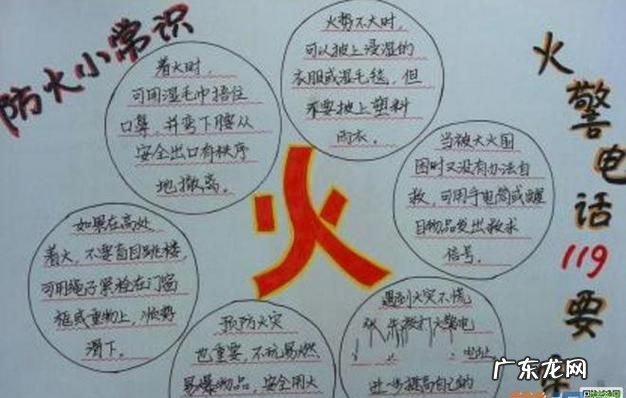 防火小常识
着火时,
可用湿毛巾捂住
口鼻,并弯下腰从
安全出口有秩序
地撤离。
火势不大时,
可以披上浸湿的
衣服或湿毛毯,但
不要披上塑料
雨衣。
火警电话119要
当被大火围
困时又没有办法自
救,可用手电筒或醒
目物品发出求救
信号。
火
如果在高处
着火,不要盲目跳楼,
可用绳子紧栓在门窗
框或重物上,顺势
滑下。
预防火灾
也重要,不玩易燃
易爆物品,安全用火
遇到火灾不慌
打火警电
地址
进步提高自己的
广东龙网